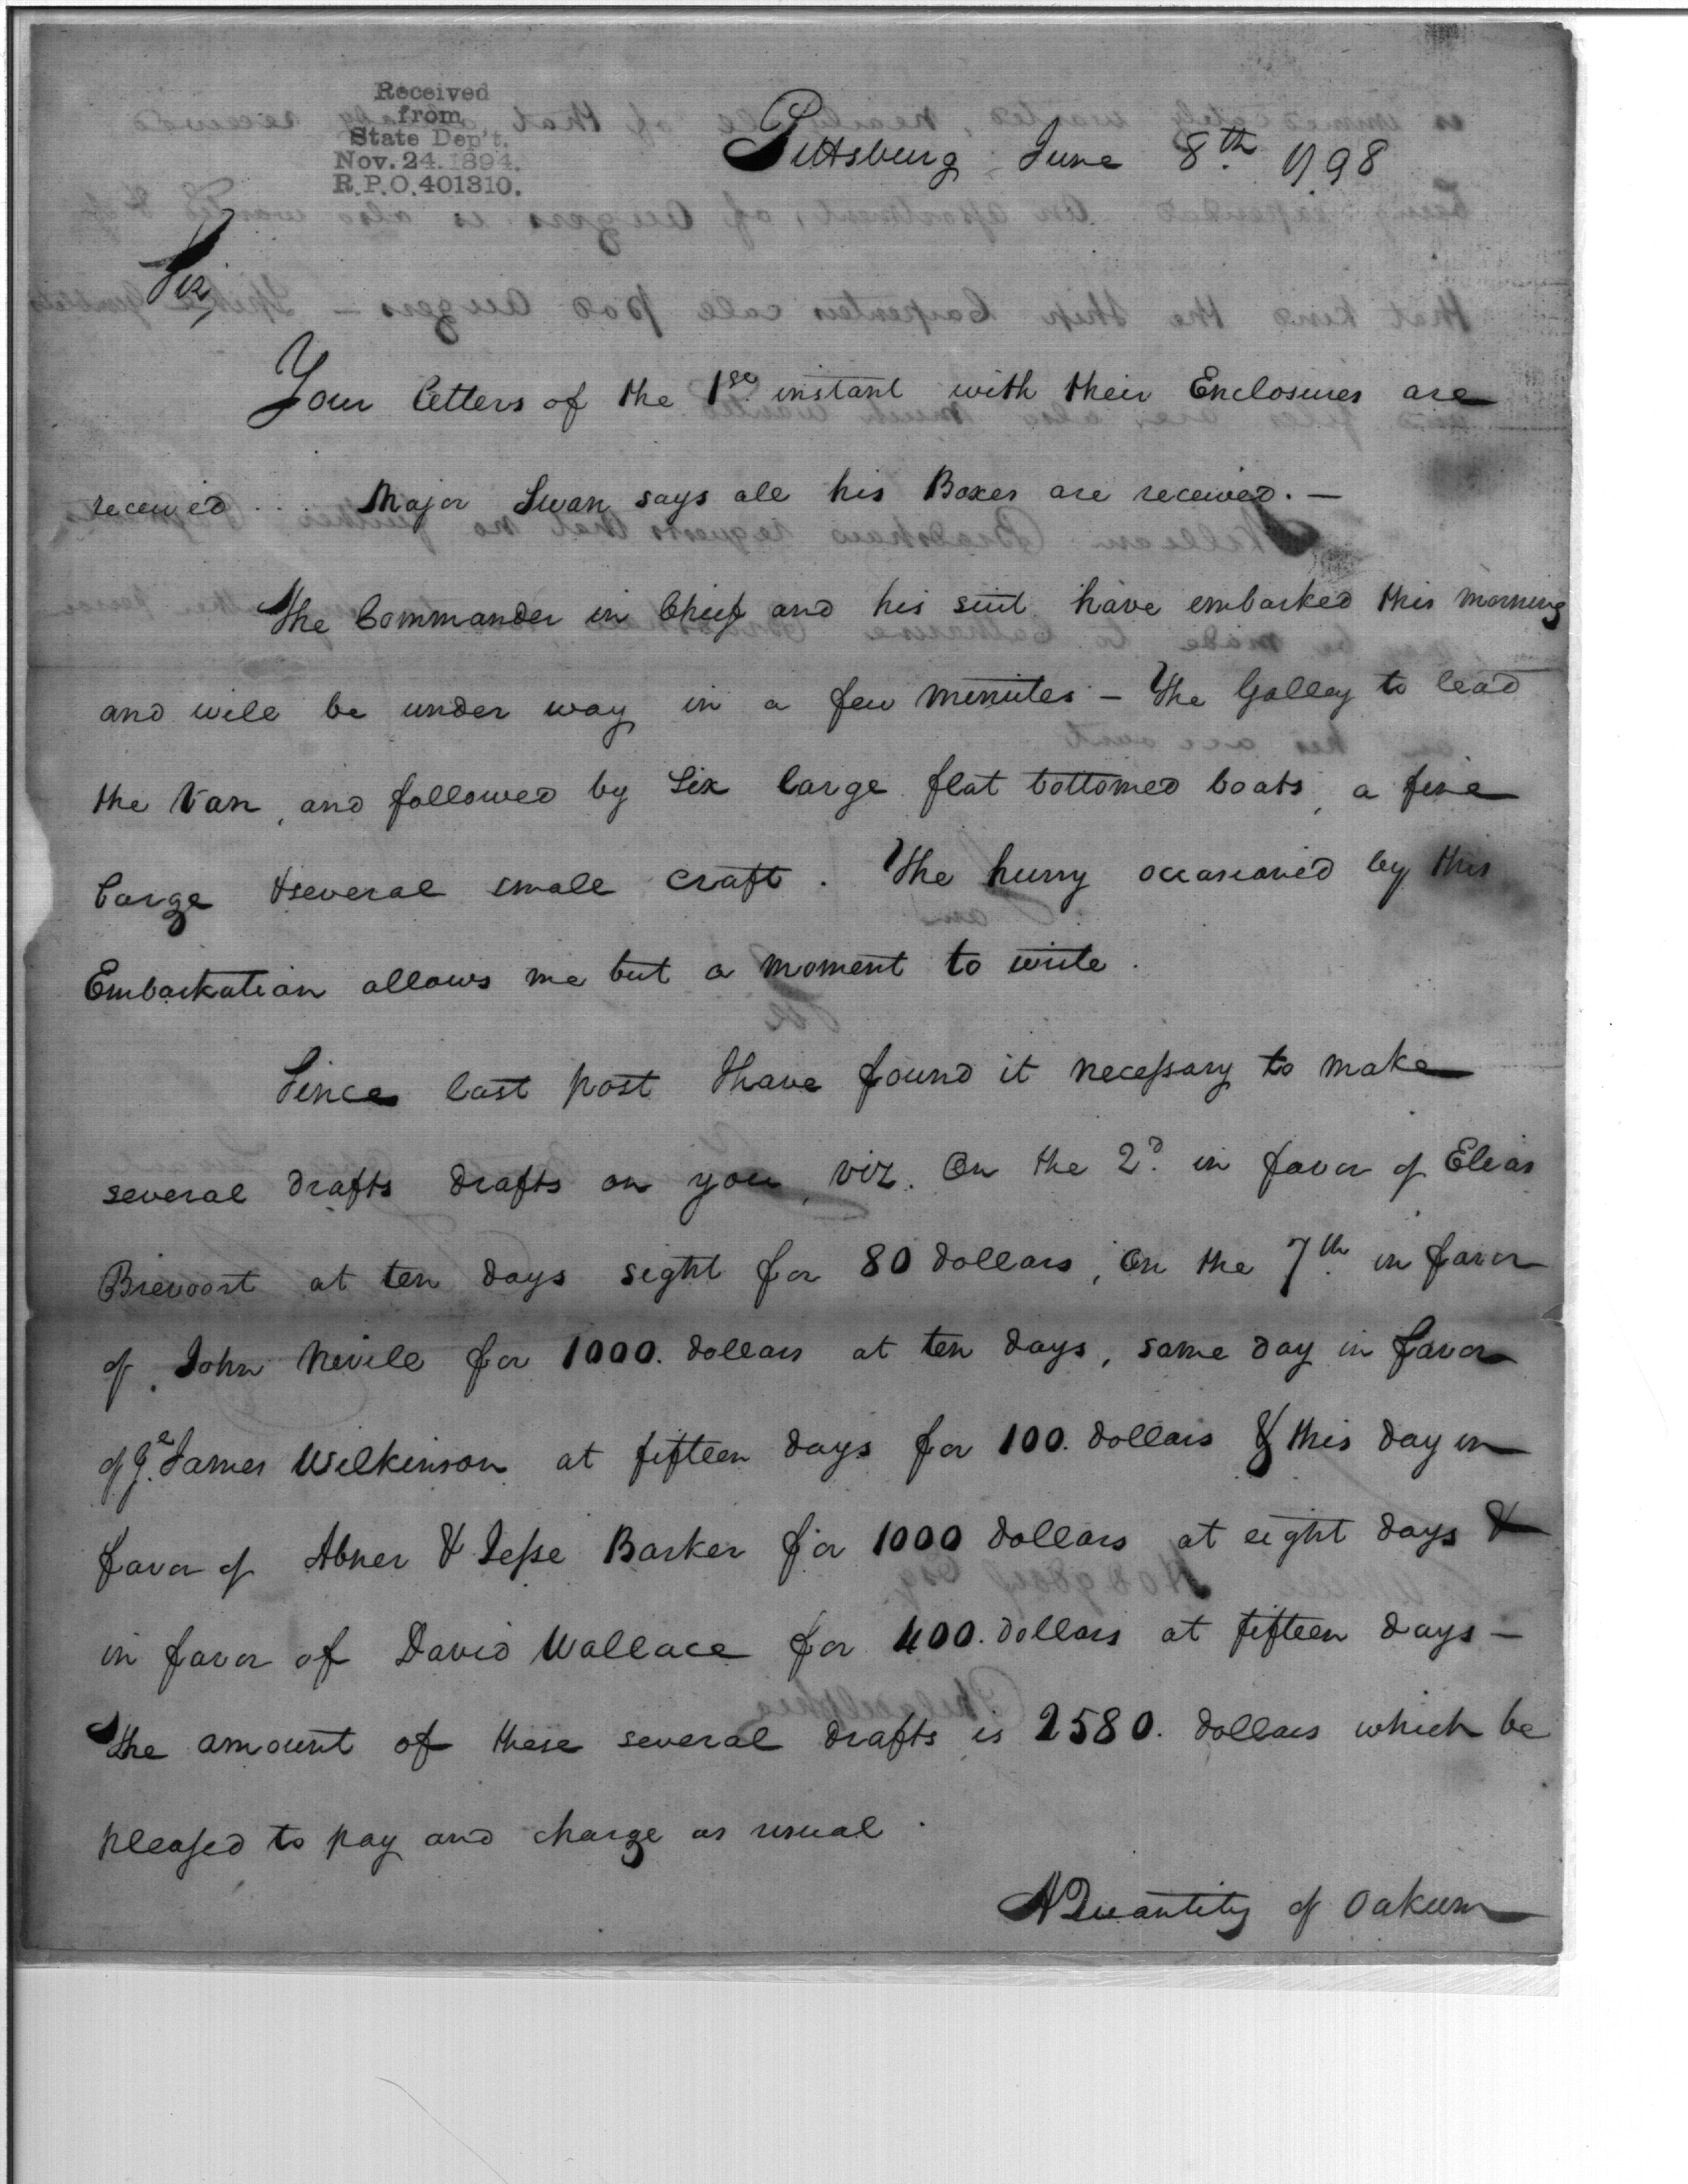 Received
from
State Dep't.
Nov. 24. 1894.
R.P.O. 401310.
Pittsburg, June 8th. 1798
Sir,
Your letters of the 1st. instant with their Enclosures are
received. Major Swan says all his Boxes are received. —
The Commander in Chief and his suit have embarked this morning
and will be under way in a few minutes — The Galley to lead
the Van, and followed by Six large flat bottomed boats, a fine
barge & several small craft. The hurry occasioned by this
Embarkation allows me but a moment to write.
Since last post I have found it necessary to make
several drafts drafts on you, viz. On the 2d. in favor of Elias
Brevoort at ten days sight for 80 dollars, On the 7th. in favor
of John Nevile for 1000. dollars at ten days, same day in favor
of Gl. James Wilkinson at fifteen days for 100. dollars & this day in
favor of Abner & Jesse Barker for 1000 dollars at eight days &
in favor of David Wallace for 400. dollars at fifteen days —
The amount of these several drafts is 2580. dollars which be
pleased to pay and charge as usual.
A Quantity of Oakum